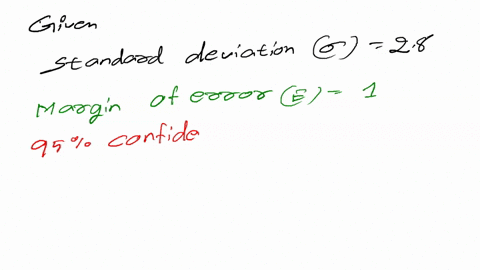 Given
Standard deviation (σ) = 2.8
Margin of error (E) = 1
95% confide